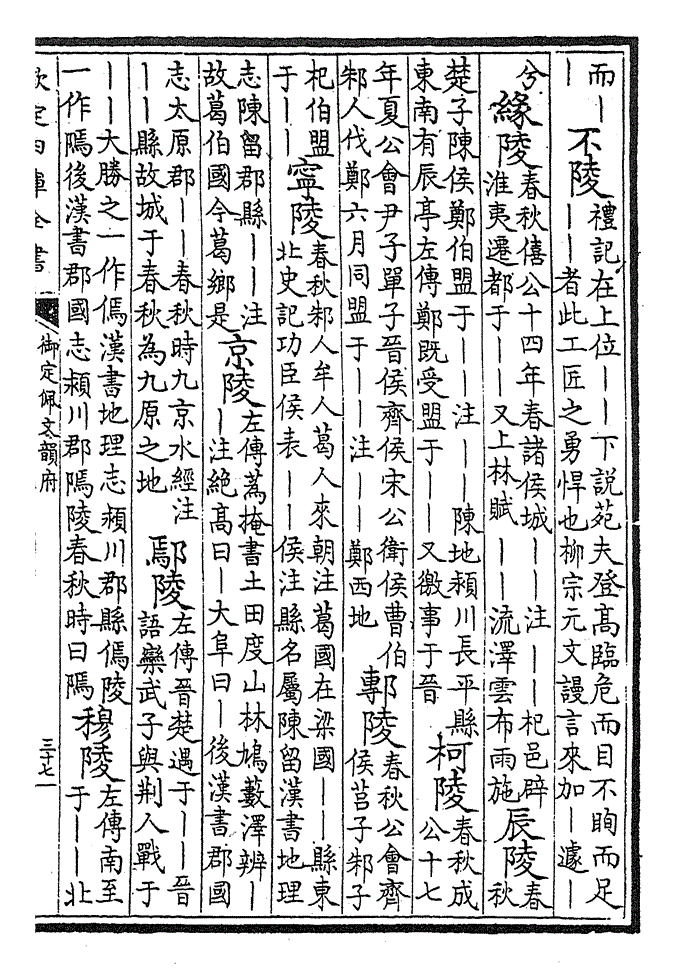 而｜｜不陵禮記在上位｜｜下說苑夫登髙臨危而目不眴而足｜｜者此工匠之勇悍也柳宗元文謾言來加｜遽｜
兮緣陵春秋僖公十四年春諸侯城｜｜注｜｜杞邑辟淮夷遷都于｜｜又上林賦｜｜流澤雲布雨施辰陵春秋
楚子陳侯鄭伯盟于｜｜注｜｜陳地潁川長平縣東南有辰亭左傳鄭既受盟于｜｜又徼事于晉柯陵春秋成公十七
年夏公會尹子單子晉侯齊侯宋公衛侯曹伯邾人伐鄭六月同盟于｜｜注｜｜鄭西地鄟陵春秋公會齊侯莒子邾子
杞伯盟于｜｜寧陵春秋邾人牟人葛人來朝注葛國在梁國｜｜縣東北史記功臣侯表｜｜侯注縣名屬陳留漢書地理
志陳留郡縣｜｜注故葛伯國今葛鄉是京陵左傳蒍掩書土田度山林鳩藪澤辨｜｜注絕髙曰｜大阜曰｜後漢書郡國
志太原郡｜｜春秋時九京水經注｜｜縣故城于春秋為九原之地鄢陵左傳晉楚遇于｜｜晉語欒武子與荆人戰于
｜｜大勝之一作傿漢書地理志潁川郡縣傿陵一作隖後漢書郡國志潁川郡隖陵春秋時曰隖穆陵左傳南至于｜｜北
欽定四庫全書
御定佩文韻府
三十七